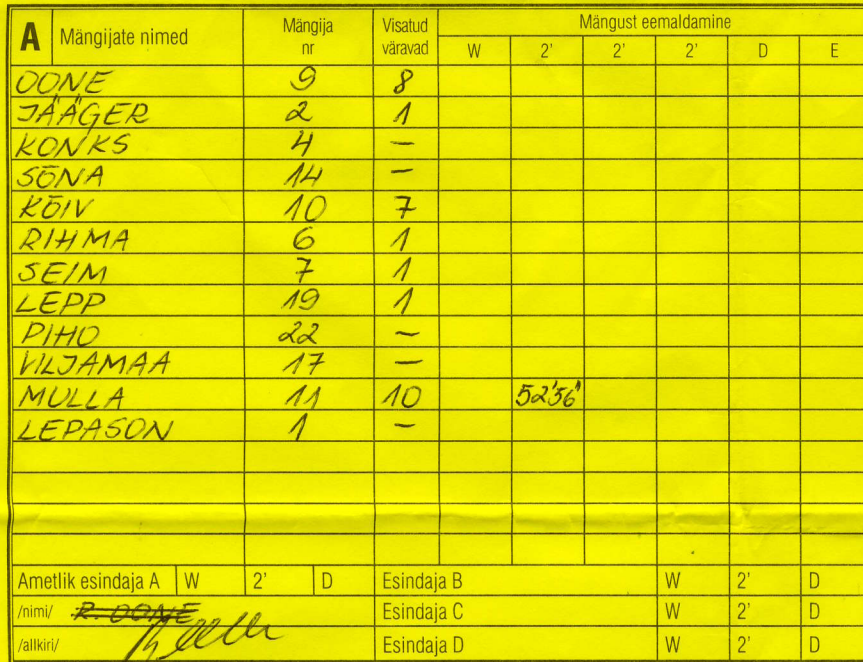 A Mängijate nimed Mängija nr Visatud väravad Mängust eemaldamine
W 2' 2' 2' D E
OONE 9 8
JÄÄGER 2 1
KONKS 4 –
SÕNA 14 –
KÕIV 10 7
RIHMA 6 1
SEIM 7 1
LEPP 19 1
PIHO 22 –
VILJAMAA 17 –
MULLA 11 10 52'56"
LEPASON 1 –
Ametlik esindaja A W 2' D Esindaja B W 2' D
/nimi/ R. OONE Esindaja C W 2' D
/allkiri/ Esindaja D W 2' D